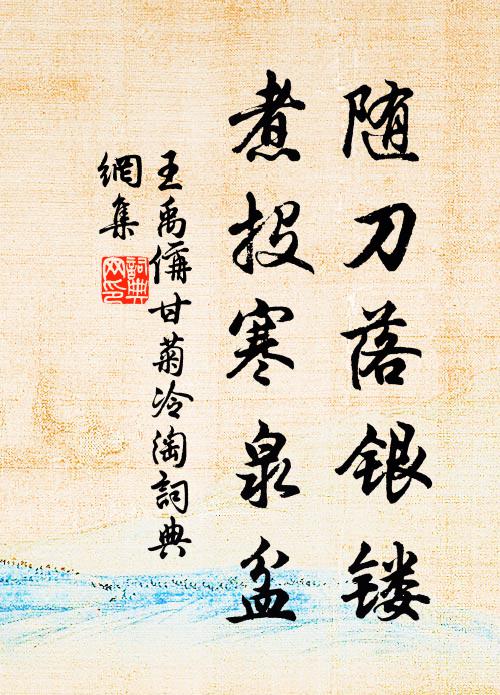 随刀落银镂
煮投寒泉盆
王禹偁甘菊冷淘詞典
網集
詞典
网印